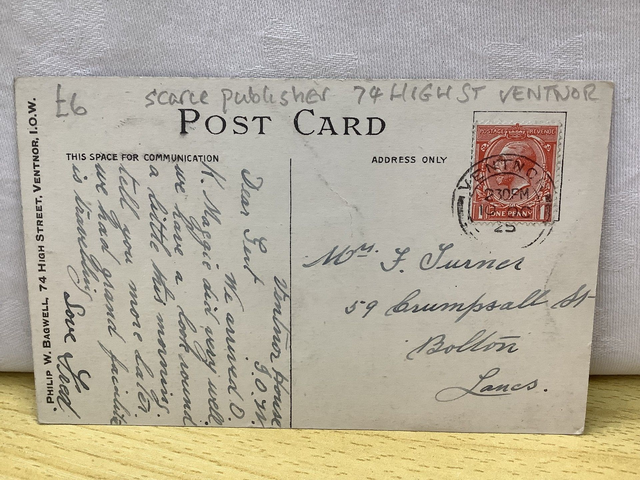 £6 scarce publisher 74 HIGH ST VENTNOR
POST CARD
THIS SPACE FOR COMMUNICATION
ADDRESS ONLY
POSTAGE REVENUE
ONE PENNY
VENTNO
230PM
25
PHILIP W. BAGWELL, 74 HIGH STREET, VENTNOR, I.O.W.
Ventnor House
I.O.W.
Dear Gert
We arrived O.
K. Maggie did very well.
we have a look round
a little this morning.
tell you more later
we had grand facilite
is travelling
Love Fred.
Mrs. F. Turner
59 Crumpsall St
Bolton
Lancs.